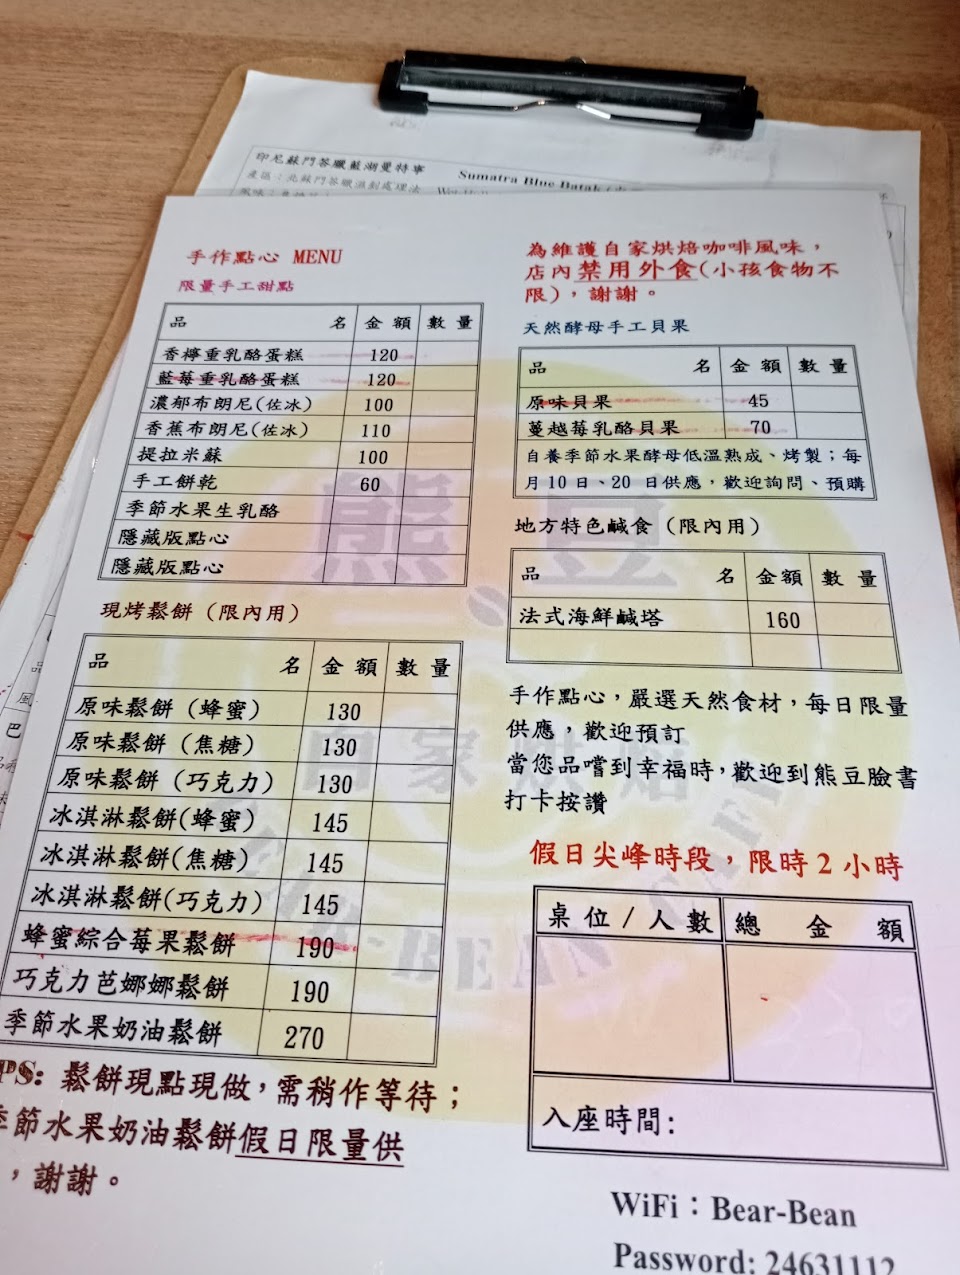 印尼蘇門答臘藍湖曼特寧
Sumatra Blue Batak
產區：北蘇門答臘濕刮處理法
手作點心 MENU
限量手工甜點
品名 金額 數量
香檸重乳酪蛋糕 120
藍莓重乳酪蛋糕 120
濃郁布朗尼(佐冰) 100
香蕉布朗尼(佐冰) 110
提拉米蘇 100
手工餅乾 60
季節水果生乳酪
隱藏版點心
隱藏版點心
現烤鬆餅（限內用）
品名 金額 數量
原味鬆餅（蜂蜜） 130
原味鬆餅（焦糖） 130
原味鬆餅（巧克力） 130
冰淇淋鬆餅(蜂蜜) 145
冰淇淋鬆餅(焦糖) 145
冰淇淋鬆餅(巧克力) 145
蜂蜜綜合莓果鬆餅 190
巧克力芭娜娜鬆餅 190
季節水果奶油鬆餅 270
PS: 鬆餅現點現做，需稍作等待；
季節水果奶油鬆餅假日限量供
，謝謝。
為維護自家烘焙咖啡風味，
店內禁用外食(小孩食物不
限)，謝謝。
天然酵母手工貝果
品名 金額 數量
原味貝果 45
蔓越莓乳酪貝果 70
自養季節水果酵母低溫熟成、烤製；每
月 10 日、20 日供應，歡迎詢問、預購
地方特色鹹食（限內用）
品名 金額 數量
法式海鮮鹹塔 160
手作點心，嚴選天然食材，每日限量
供應，歡迎預訂
當您品嚐到幸福時，歡迎到熊豆臉書
打卡按讚
假日尖峰時段，限時 2 小時
桌位/人數 總金額
入座時間:
WiFi：Bear-Bean
Password: 24631112
熊豆
自家烘焙
BEAR-BEAN CAFE